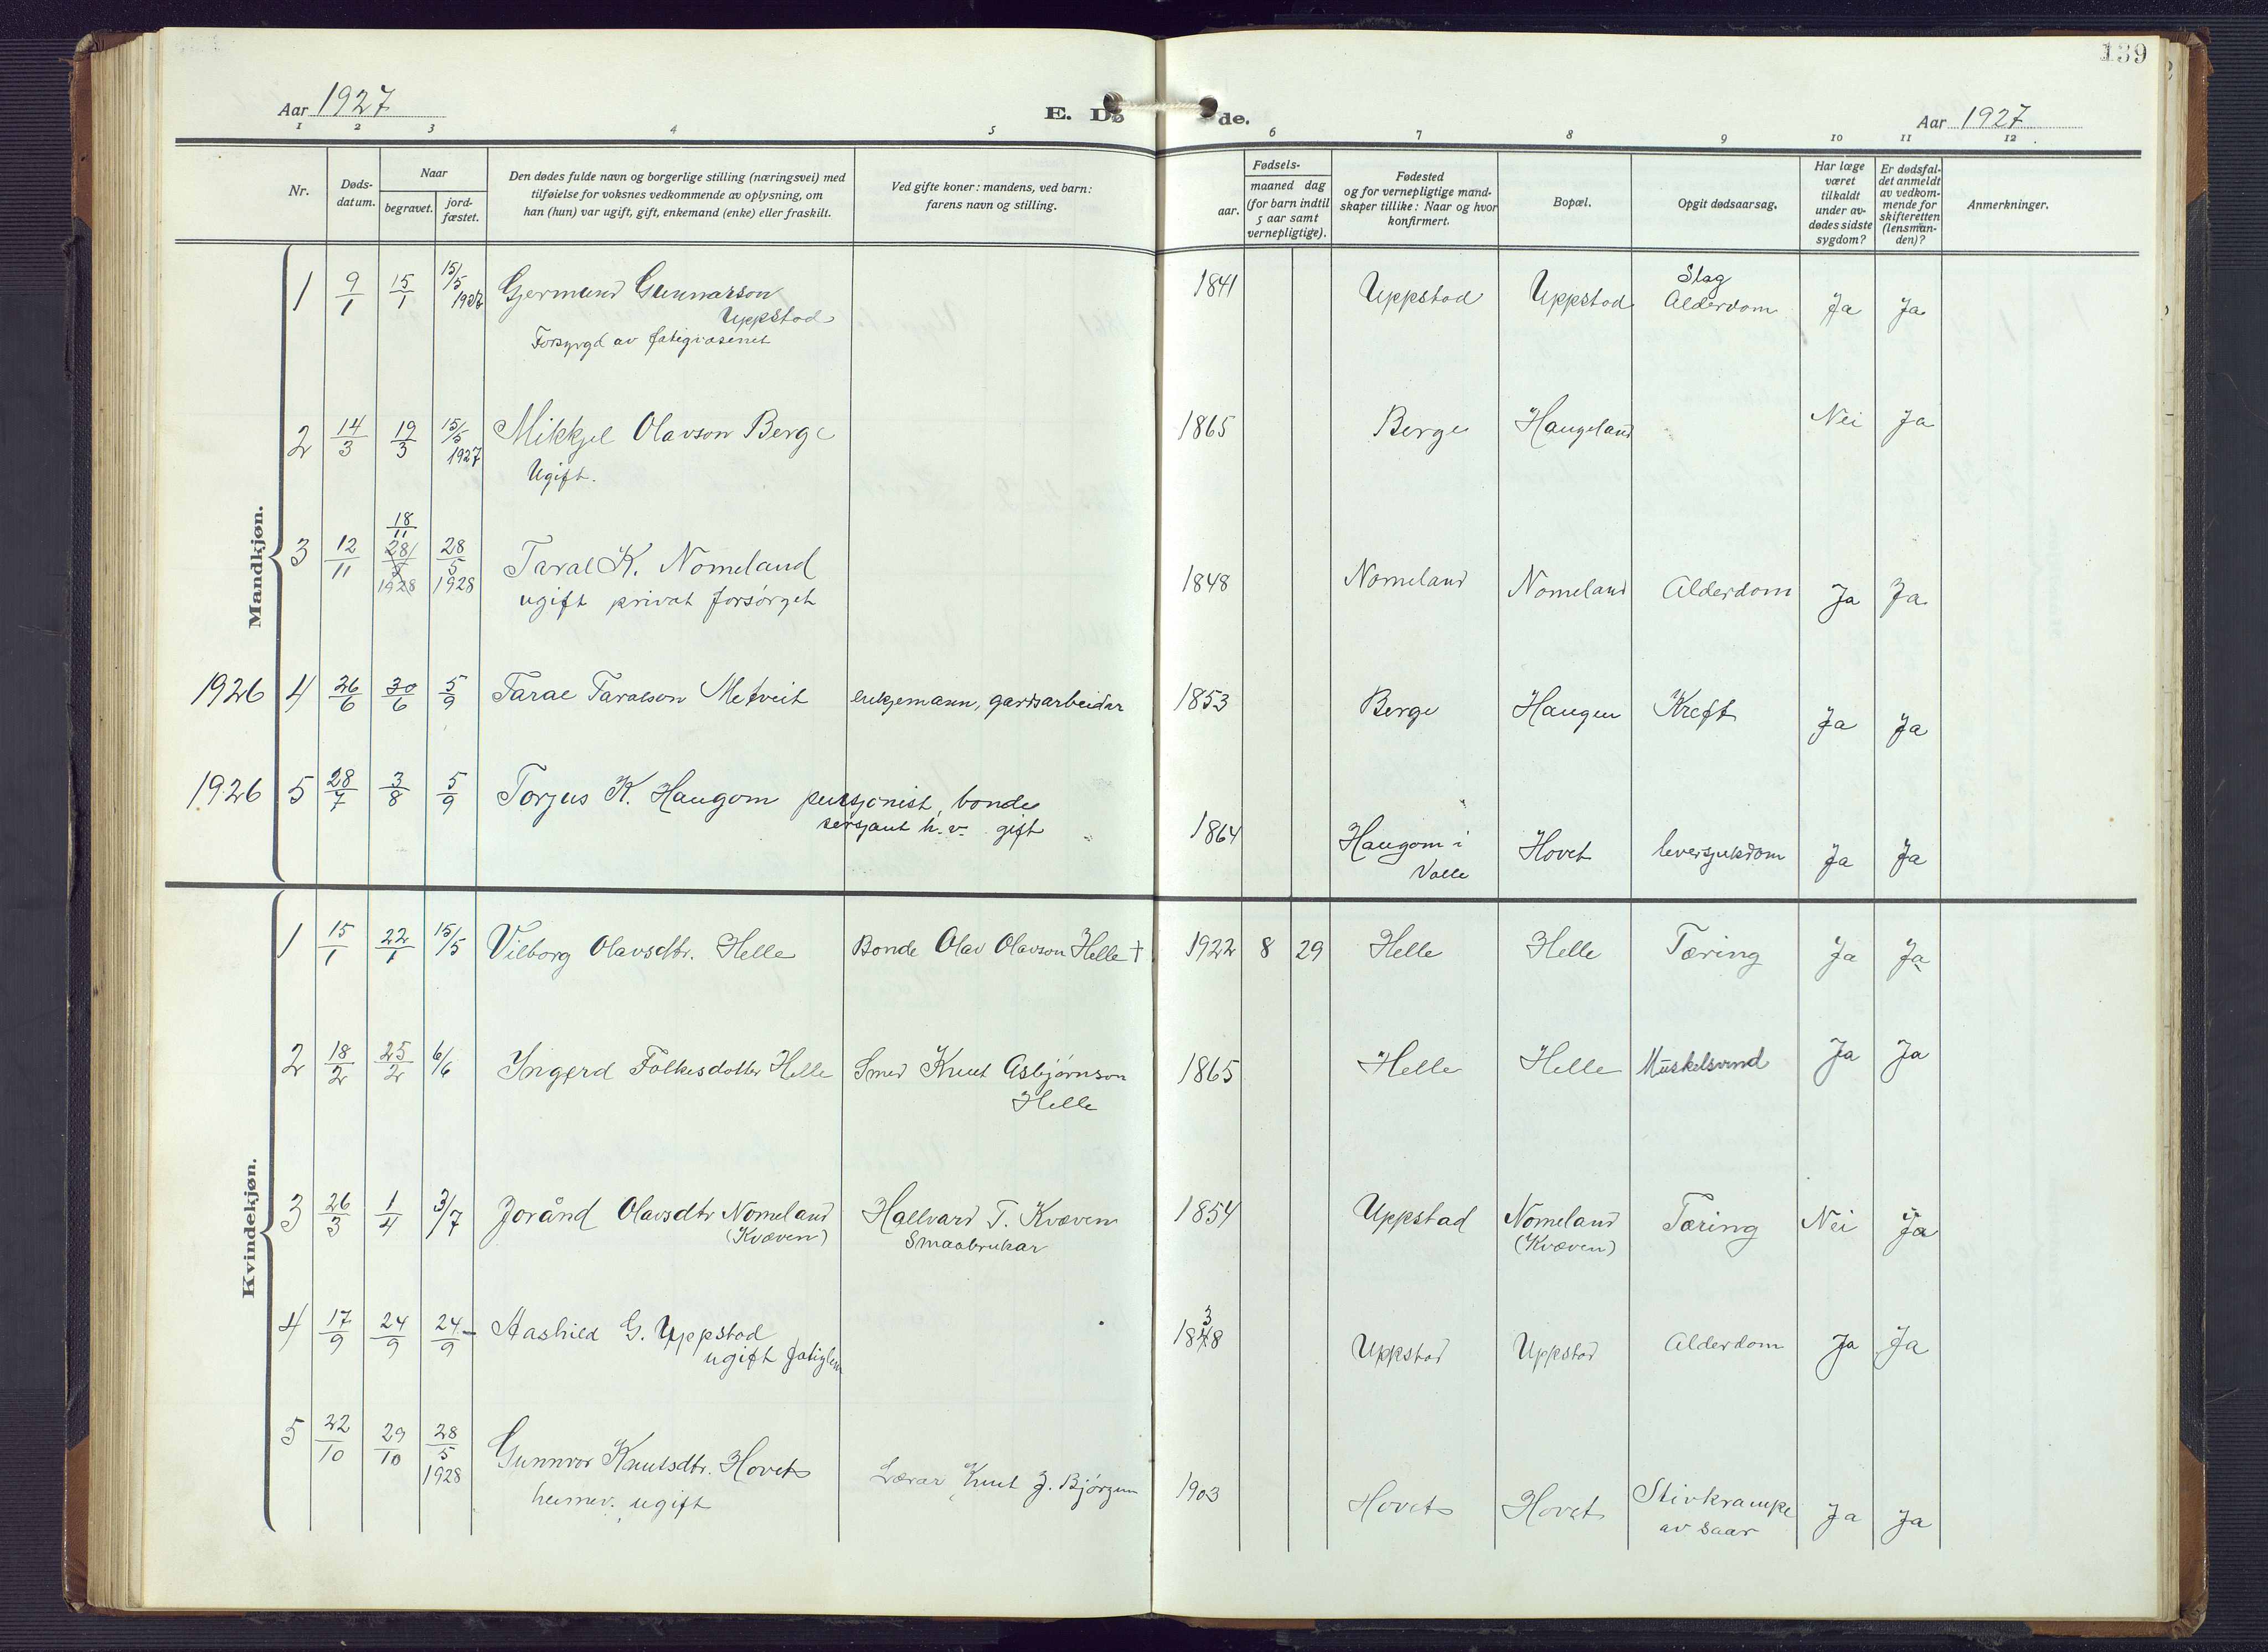 139
Aar 1927
E. Dø de.
Aar 1927
1 2 3 4 5 6 7 8 9 10 11 12
Nr.
Døds-
datum.
Naar
begravet.
jord-
fæstet.
Den dødes fulde navn og borgerlige stilling (næringsvei) med
tilføielse for voksnes vedkommende av oplysning, om
han (hun) var ugift, gift, enkemand (enke) eller fraskilt.
Ved gifte koner: mandens, ved barn:
farens navn og stilling.
Fødsels-
aar.
maaned dag
(for barn indtil
5 aar samt
vernepligtige).
Fødested
og for vernepligtige mand-
skaper tillike: Naar og hvor
konfirmert.
Bopæl.
Opgit dødsaarsag.
Har læge
været
tilkaldt
under av-
dødes sidste
sygdom?
Er dødsfal-
det anmeldt
av vedkom-
mende for
skifteretten
(lensman-
den)?
Anmerkninger.
Mandkjøn.
1 9/1 15/1 15/5 1927 Gjermund Gunnarson
Uppstad
Forsyrgd av fatigvæsenet
1841 Uppstad Uppstad Slag
Alderdom Ja Ja
2 14/3 19/3 15/5 1927 Mikkjel Olavson Berge
Ugift.
1865 Berge Haugeland Nei Ja
3 12/11 18/11 28/5 1928 28/5 1928 Taral K. Nomeland
ugift privat forsørget
1848 Nomeland Nomeland Alderdom Ja Ja
1926 4 26/6 30/6 5/9 Taral Taralson Metveit enkjemann, gardsarbeidar 1853 Berge Haugen Kreft Ja Ja
1926 5 28/7 3/8 5/9 Torjus K. Haugom pensjonist, bonde
sersjant h.v. gift
1864 Haugom i
Valle
Hovet leversjukdom Ja Ja
Kvindekjøn.
1 15/1 22/1 15/5 Vilborg Olavsdtr. Helle Bonde Olav Olavson Helle † 1922 8 29 Helle Helle Tæring Ja Ja
2 18/2 25/2 6/6 Ingerd Folkesdotter Helle Smed Knut Asbjørnson
Helle
1865 Helle Helle Muskelsvind Ja Ja
3 26/3 1/4 3/7 Jorånd Olavsdtr Nomeland
(Kvæven)
Hallvard T. Kvæven
Smaabrukar
1854 Uppstad Nomeland
(Kvæven)
Tæring Nei Ja
4 17/9 24/9 24/9 Aashild G. Uppstad
ugift fatiglem
3
1848 Uppstad Uppstad Alderdom Ja Ja
5 22/10 29/10 28/5 1928 Gunnvor Knutsdtr. Hovet
heimev. ugift
Lærar Knut J. Bjørgum 1903 Hovet Hovet Stivkrampe
av saar
Ja Ja